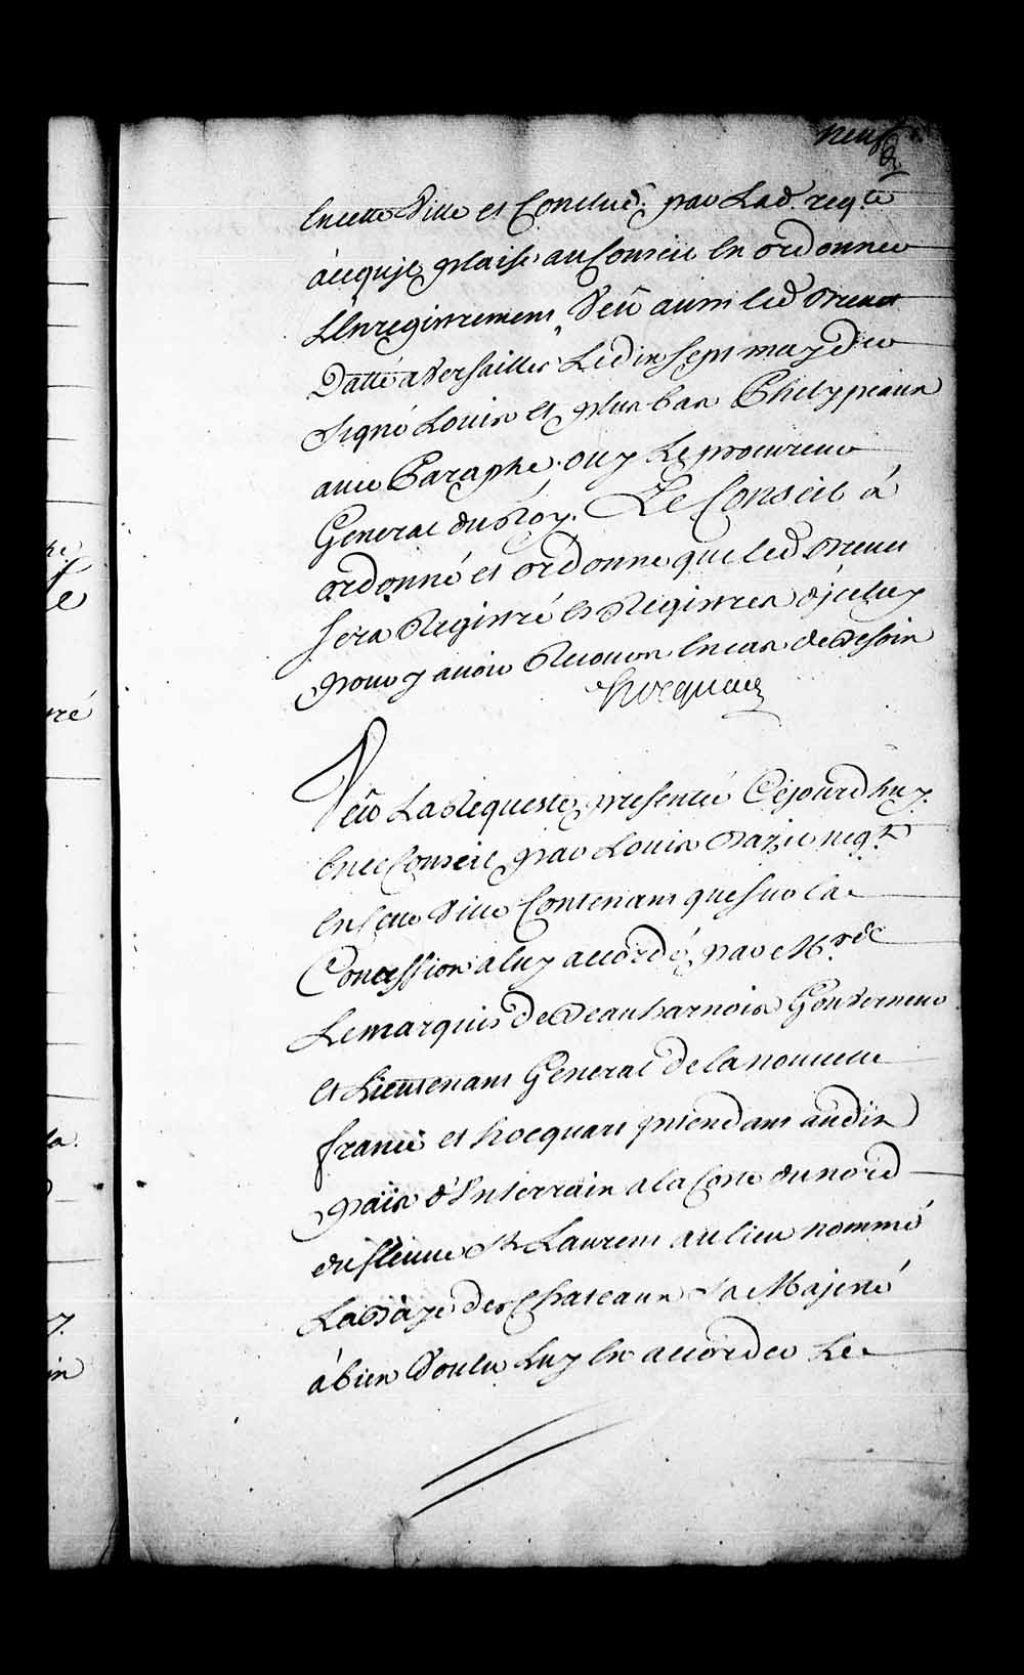 neuf
Encette Ville et Conclud. par Lad. reqte
àcequ'il plaise au Conseil En ordonner
L'Enregistrement, Veû aussi led Brevet
Datté a Versailles Ledix sept may dern
signé Louis et plus bas Phelypeaux
avec Paraphe. ouy Le procureur
General du Roy. Le Conseil à
ordonné et ordonne que led Brevet
sera Registré Es Registres d'jceluy
pour y avoir Recours En cas de Besoin
hocquart
Veu La Requeste presentée Cejourd'huy
En ce Conseil par Louis Bazil negt
En cette Ville Contenant que sur la
Concession a luy accordé par Mrs de
Le marquis de Beauharnois Gouverneur
Et Lieutenant General de la nouvelle
france et hocquart jntendant audit
païs d'Un terrain a la Coste du nord
du fleuve St Laurent au lieu nommé
La Baye des Chateaux Sa Majesté
à bien Voulu Luy En accorder Le
ré
la.
y.
in